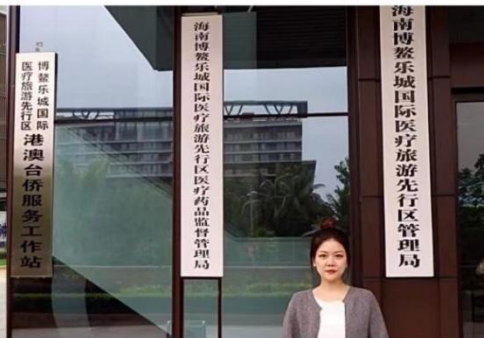 博鳌乐城国际
医疗旅游先行区
港澳台侨服务工作站
海南博鳌乐城国际医疗旅游先行区医疗药品监督管理局
海南博鳌乐城国际医疗旅游先行区管理局